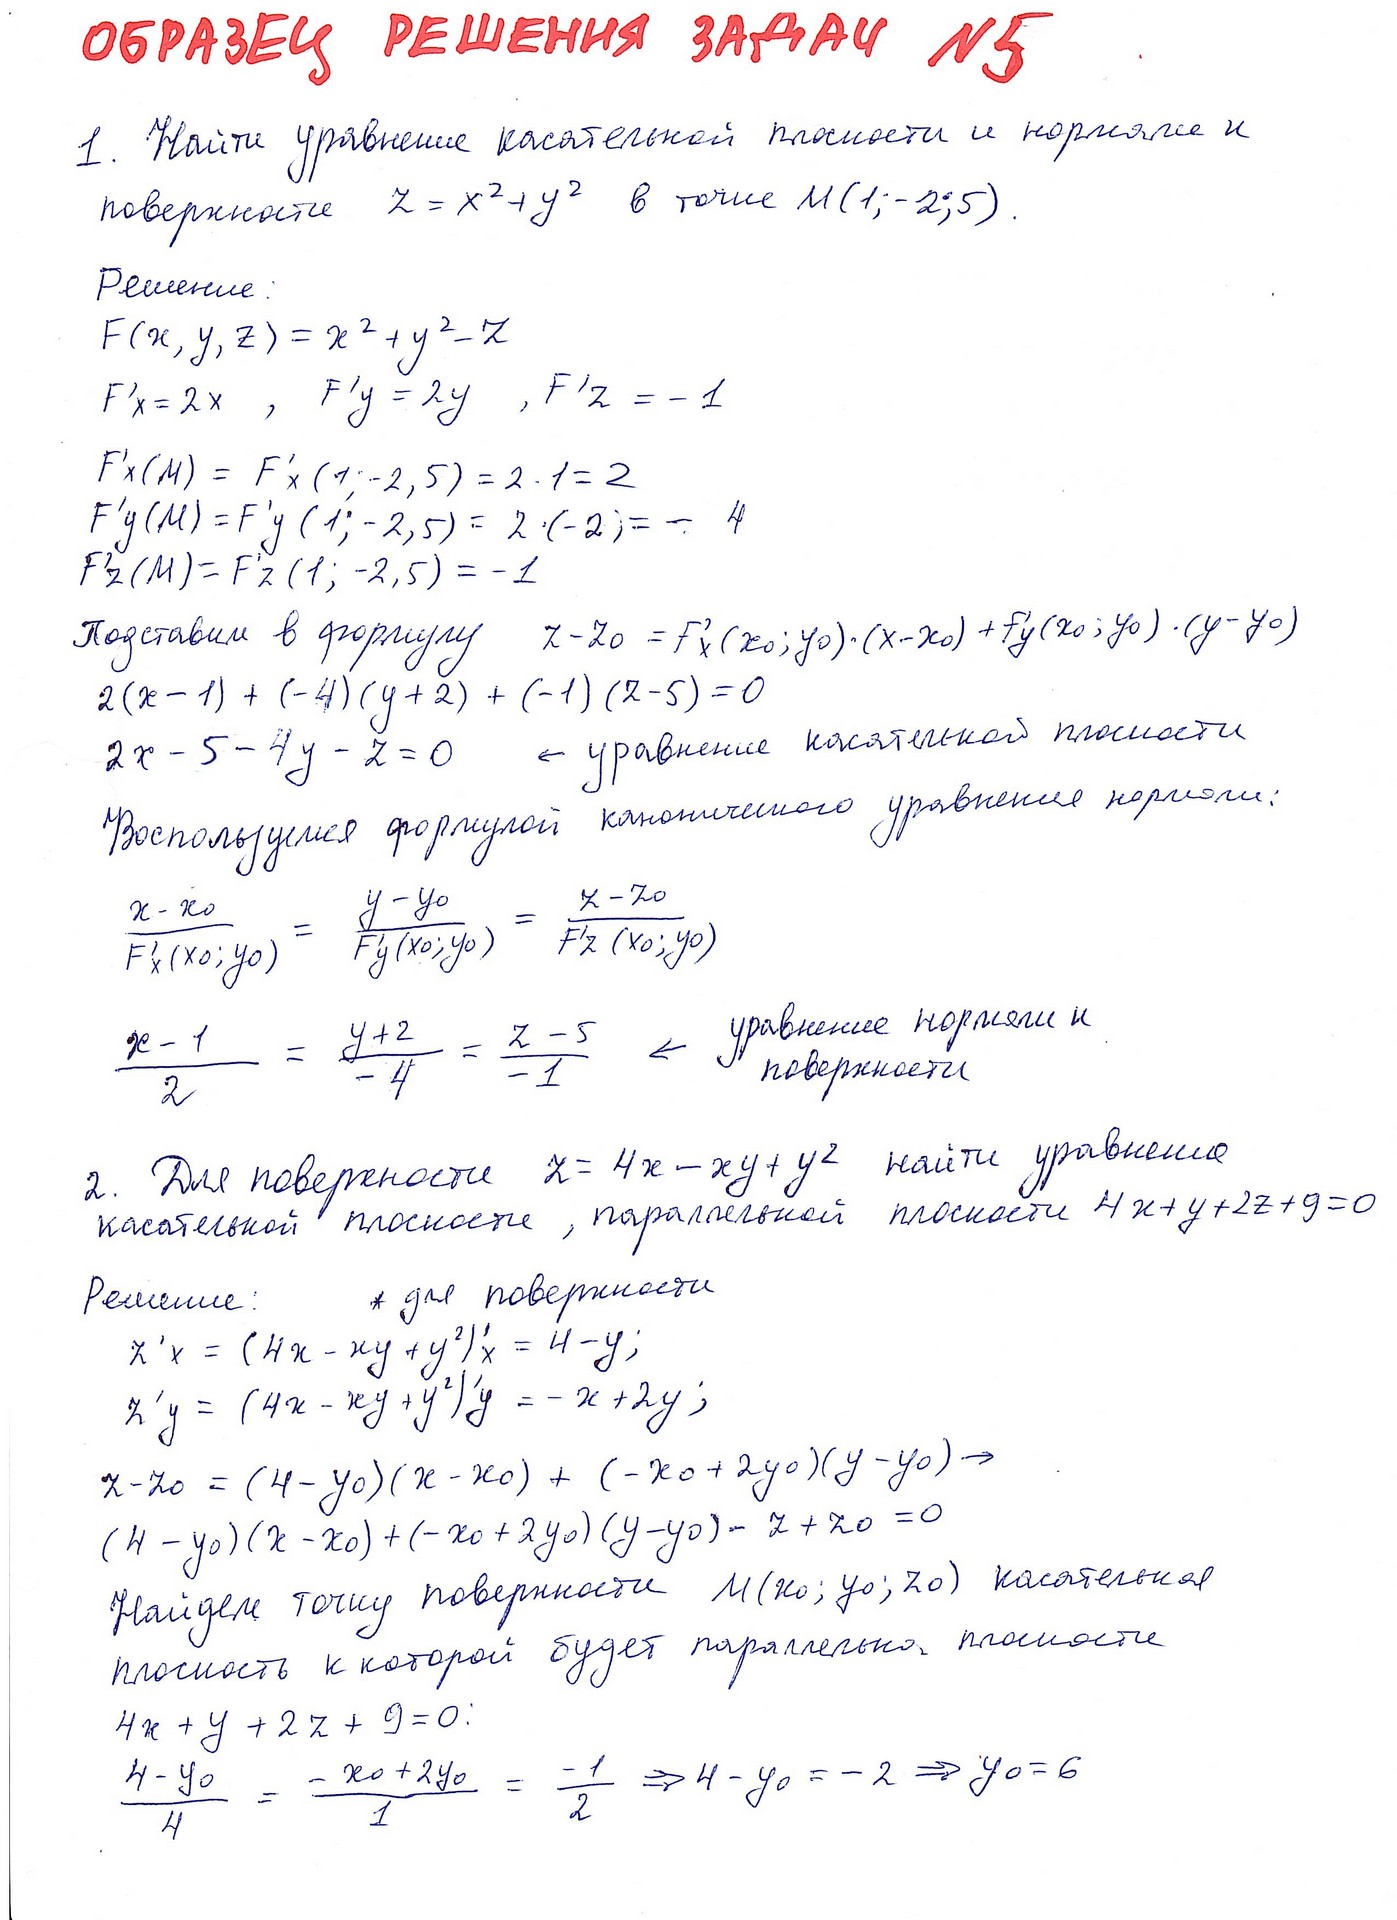 ОБРАЗЕЦ РЕШЕНИЯ ЗАДАЧ №5
1. Найти уравнение касательной плоскости и нормали к
поверхности z = x² + y² в точке M(1; -2; 5).
Решение:
F(x, y, z) = x² + y² - z
F'x = 2x , F'y = 2y , F'z = -1
F'x(M) = F'x(1; -2, 5) = 2·1 = 2
F'y(M) = F'y(1; -2, 5) = 2·(-2) = - 4
F'z(M) = F'z(1; -2, 5) = -1
Подставим в формулу z - z0 = F'x(x0; y0)·(x - x0) + F'y(x0; y0)·(y - y0)
2(x - 1) + (-4)(y + 2) + (-1)(z - 5) = 0
2x - 5 - 4y - z = 0 ← уравнение касательной плоскости
Воспользуемся формулой канонического уравнения нормали:
(x - x0)/(F'x(x0; y0)) = (y - y0)/(F'y(x0; y0)) = (z - z0)/(F'z(x0; y0))
(x - 1)/2 = (y + 2)/(-4) = (z - 5)/(-1) ← уравнение нормали к
поверхности
2. Для поверхности z = 4x - xy + y² найти уравнение
касательной плоскости, параллельной плоскости 4x + y + 2z + 9 = 0
Решение: * для поверхности
z'x = (4x - xy + y²)'x = 4 - y;
z'y = (4x - xy + y²)'y = -x + 2y;
z - z0 = (4 - y0)(x - x0) + (-x0 + 2y0)(y - y0) →
(4 - y0)(x - x0) + (-x0 + 2y0)(y - y0) - z + z0 = 0
Найдем точку поверхности M(x0; y0; z0) касательная
плоскость к которой будет параллельна плоскости
4x + y + 2z + 9 = 0:
(4 - y0)/4 = (-x0 + 2y0)/1 = -1/2 ⇒ 4 - y0 = -2 ⇒ y0 = 6